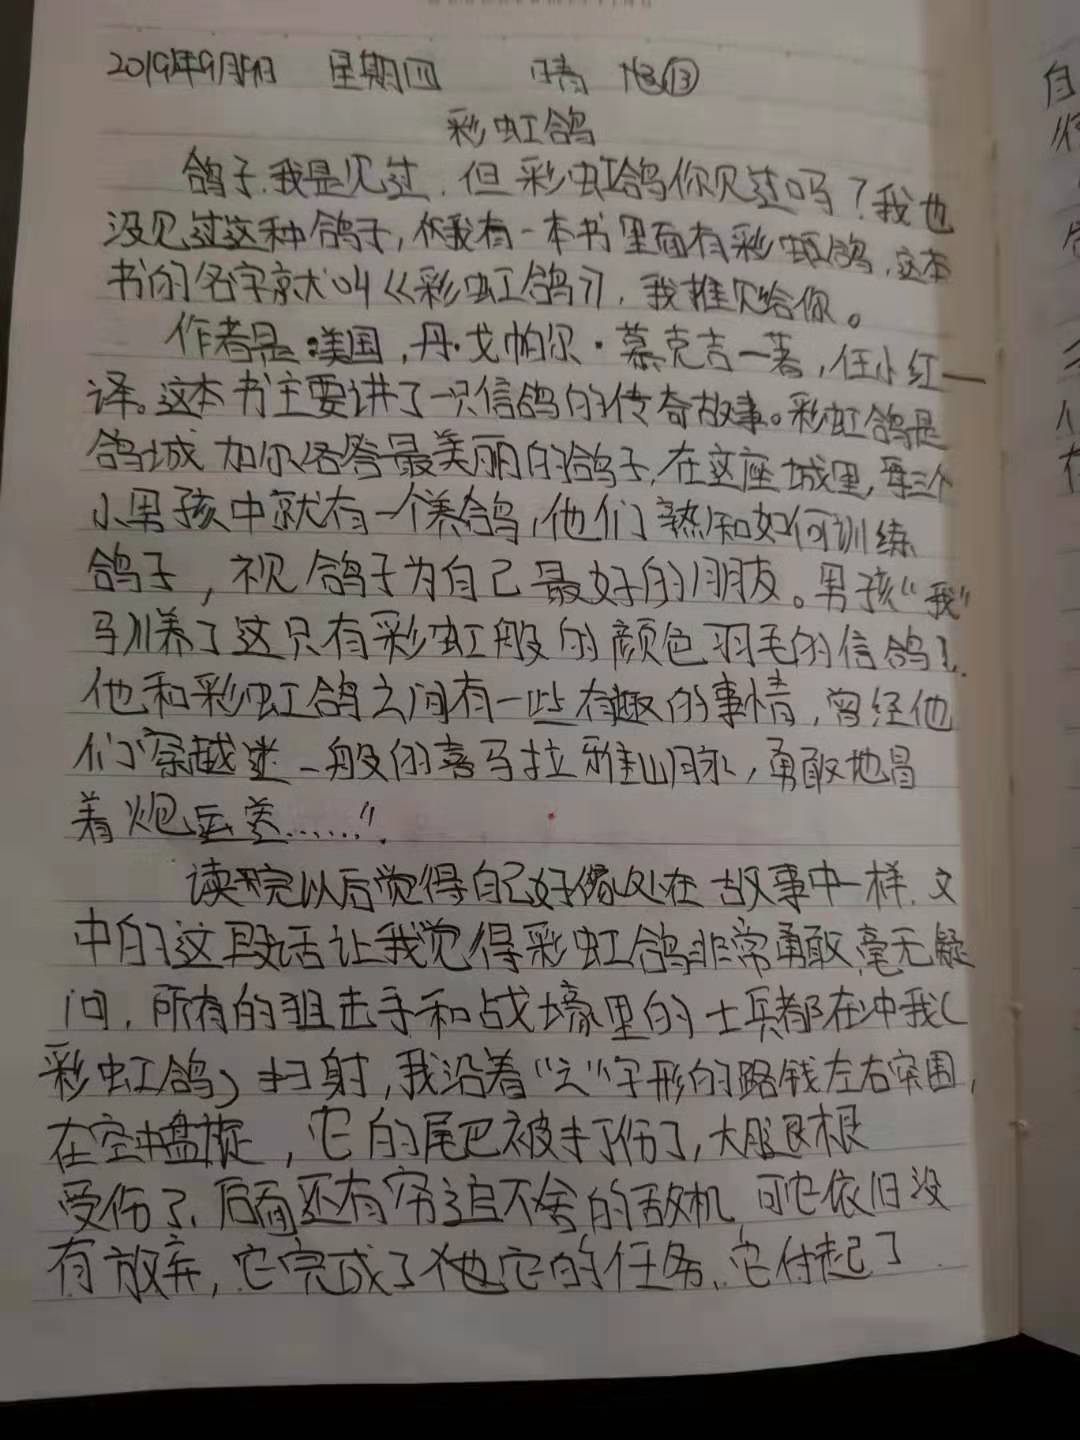 2019年9月 星期四 晴 ⑬
彩虹鸽
鸽子,我是见过,但彩虹鸽你见过吗?我也
没见过这种鸽子,但我有一本书里面有彩虹鸽,这本
书的名字就叫《彩虹鸽》,我推见给你。
作者是:美国,丹·戈帕尔·慕克吉一著,任小红一
译。这本书主要讲了一只信鸽的传奇故事。彩虹鸽是
鸽城加尔各答最美丽的鸽子,在这座城里,每三个
小男孩中就有一个养鸽,他们熟知如何训练
鸽子,视鸽子为自己最好的朋友。男孩“我”
驯养了这只有彩虹般的颜色羽毛的信鸽
他和彩虹鸽之间有一些有趣的事情,曾经他
们穿越迷一般的喜马拉雅山脉,勇敢地冒
着炮……”
读完以后觉得自己好像处在故事中一样,文
中的这段话让我觉得彩虹鸽非常勇敢,毫无疑
问,所有的狙击手和战壕里的士兵都在冲我(
彩虹鸽)扫射,我沿着“之”字形的路钱左右突围,
在空中盘旋,它的尾巴被打伤了,大腿根
受伤了,后面还有穷追不舍的敌机,可它依旧没
有放弃,它完成了他它的任务,它付起了